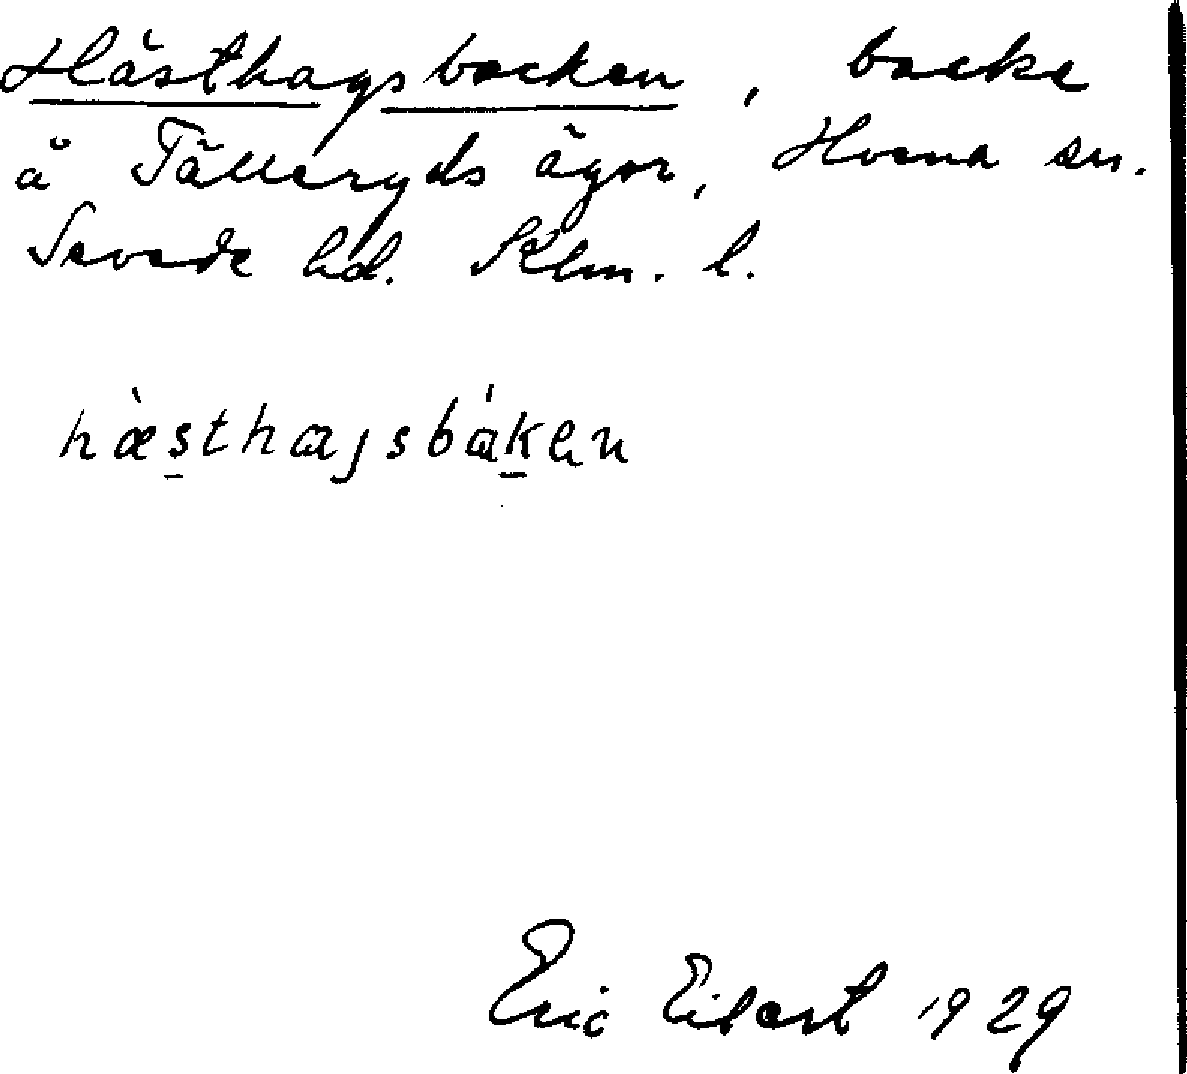 Hästhagsbacken, backe
å Tälleryds ägor, Hvena sn.
Sevede hd. Klm. l.
hæ̀s̠thaɟsbák̠en
Eric Eibert 1929